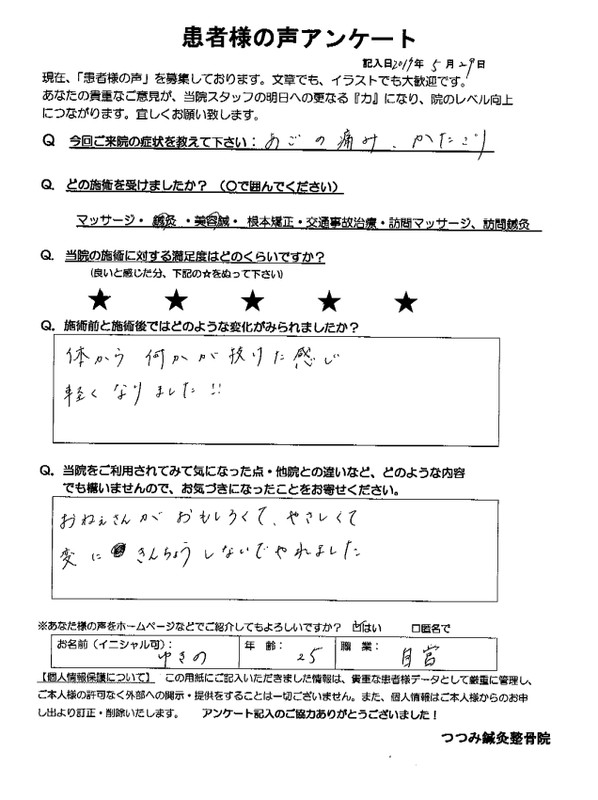 患者様の声アンケート
記入日2019年 5月29日
現在、「患者様の声」を募集しております。文章でも、イラストでも大歓迎です。
あなたの貴重なご意見が、当院スタッフの明日への更なる『力』になり、院のレベル向上
につながります。宜しくお願い致します。
Q 今回ご来院の症状を教えて下さい：あごの痛み、かたこり
Q. どの施術を受けましたか？（〇で囲んでください）
マッサージ・鍼灸・美容鍼・根本矯正・交通事故治療・訪問マッサージ、訪問鍼灸
Q. 当院の施術に対する満足度はどのくらいですか？
(良いと感じた分、下記の☆をぬって下さい)
★ ★ ★ ★ ★
Q. 施術前と施術後ではどのような変化がみられましたか？
体から 何かが抜けた感じ
軽くなりました!!
Q. 当院をご利用されてみて気になった点・他院との違いなど、どのような内容
でも構いませんので、お気づきになったことをお寄せください。
おねぇさんが おもしろくて、やさしくて
変に きんちょうしないでやれました
※あなた様の声をホームページなどでご紹介してもよろしいですか？ ☑はい □匿名で
お名前（イニシャル可）：ゆきの 年 齢：25 職 業：自営
【個人情報保護について】 この用紙にご記入いただきました情報は、貴重な患者様データとして厳重に管理し、
ご本人様の許可なく外部への開示・提供をすることは一切ございません。また、個人情報はご本人様からのお申
し出より訂正・削除いたします。 アンケート記入のご協力ありがとうございました！
つつみ鍼灸整骨院